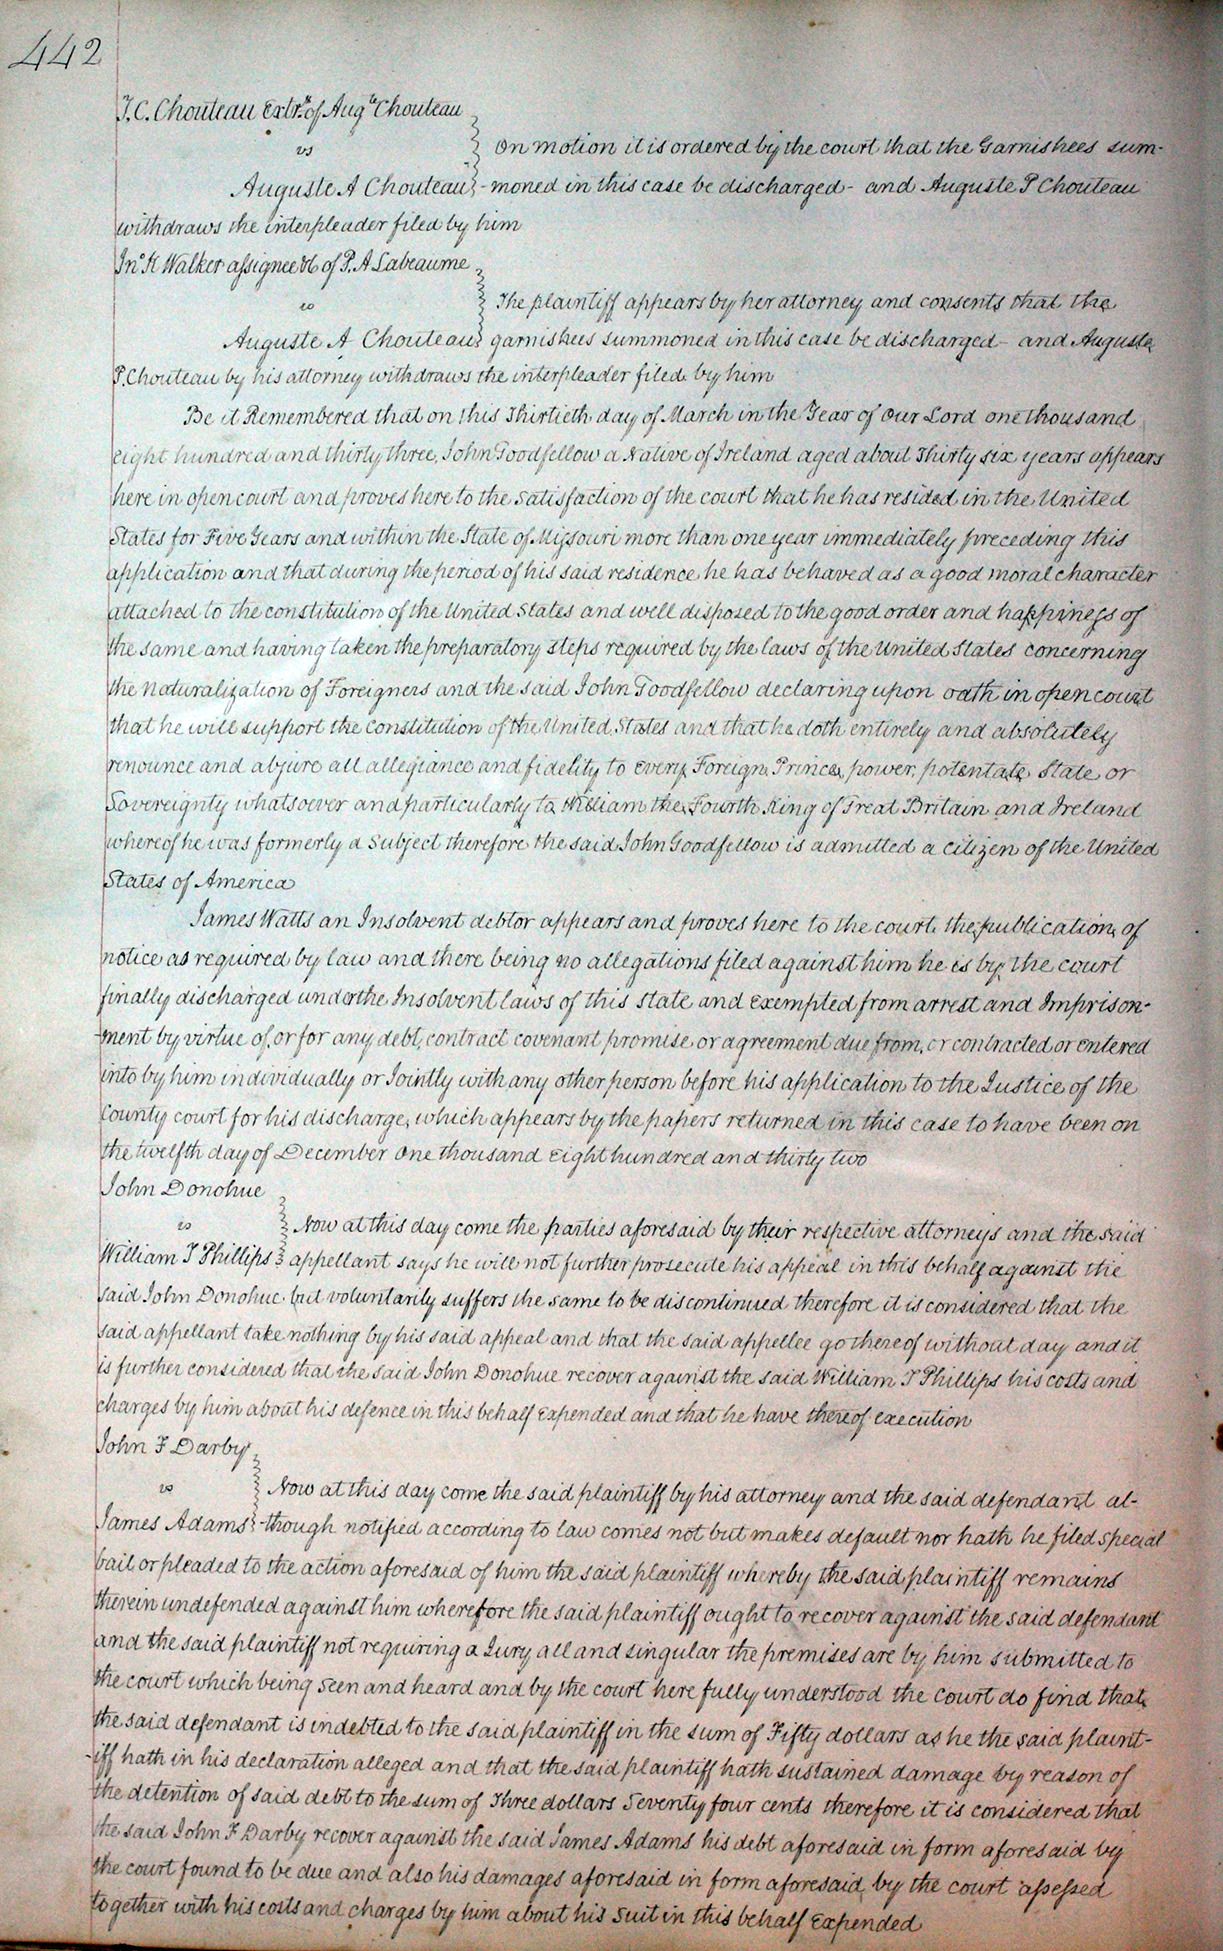 442
T. C. Chouteau Extrx of Augte Chouteau
vs
On motion it is ordered by the court that the Garnishees sum-
Auguste A Chouteau -moned in this case be discharged - and Auguste P Chouteau
withdraws the interpleader filed by him
Jno K Walker assignee &c of P. A Labeaume
vs
The plaintiff appears by her attorney and consents that the
Auguste A Chouteau garnishees summoned in this case be discharged - and Auguste
P. Chouteau by his attorney withdraws the interpleader filed by him
Be it Remembered that on this Thirtieth day of March in the Year of Our Lord one thousand
eight hundred and thirty three, John Goodfellow a Native of Ireland aged about Thirty six years appears
here in open court and proves here to the satisfaction of the court that he has resided in the United
States for Five Years and within the State of Missouri more than one year immediately preceding this
application and that during the period of his said residence he has behaved as a good moral character
attached to the constitution of the United States and well disposed to the good order and happiness of
the same and having taken the preparatory steps required by the laws of the United States concerning
the naturalization of Foreigners and the said John Goodfellow declaring upon oath in open court
that he will support the constitution of the United States and that he doth entirely and absolutely
renounce and abjure all allegiance and fidelity to every Foreign Prince, power, potentate State or
Sovereignty whatsoever and particularly to William the Fourth King of Great Britain and Ireland
whereof he was formerly a Subject therefore the said John Goodfellow is admitted a citizen of the United
States of America
James Watts an Insolvent debtor appears and proves here to the court the publication of
notice as required by law and there being no allegations filed against him he is by the court
finally discharged under the Insolvent laws of this state and exempted from arrest and Imprison-
-ment by virtue of, or for any debt, contract covenant promise or agreement due from, or contracted or entered
into by him individually or Jointly with any other person before his application to the Justice of the
County court for his discharge, which appears by the papers returned in this case to have been on
the twelfth day of December one thousand eight hundred and thirty two
John Donohue
vs
Now at this day come the parties aforesaid by their respective attorneys and the said
William T Phillips appellant says he will not further prosecute his appeal in this behalf against the
said John Donohue but voluntarily suffers the same to be discontinued therefore it is considered that the
said appellant take nothing by his said appeal and that the said appellee go thereof without day and it
is further considered that the said John Donohue recover against the said William T Phillips his costs and
charges by him about his defence in this behalf expended and that he have thereof execution
John F Darby
vs
Now at this day come the said plaintiff by his attorney and the said defendant al-
James Adams -though notified according to law comes not but makes default nor hath he filed special
bail or pleaded to the action aforesaid of him the said plaintiff whereby the said plaintiff remains
therein undefended against him wherefore the said plaintiff ought to recover against the said defendant
and the said plaintiff not requiring a Jury all and singular the premises are by him submitted to
the court which being seen and heard and by the court here fully understood the court do find that
the said defendant is indebted to the said plaintiff in the sum of Fifty dollars as he the said plaint-
-iff hath in his declaration alleged and that the said plaintiff hath sustained damage by reason of
the detention of said debt to the sum of Three dollars Seventy four cents therefore it is considered that
the said John F Darby recover against the said James Adams his debt aforesaid in form aforesaid by
the court found to be due and also his damages aforesaid in form aforesaid by the court assessed
together with his costs and charges by him about his suit in this behalf expended